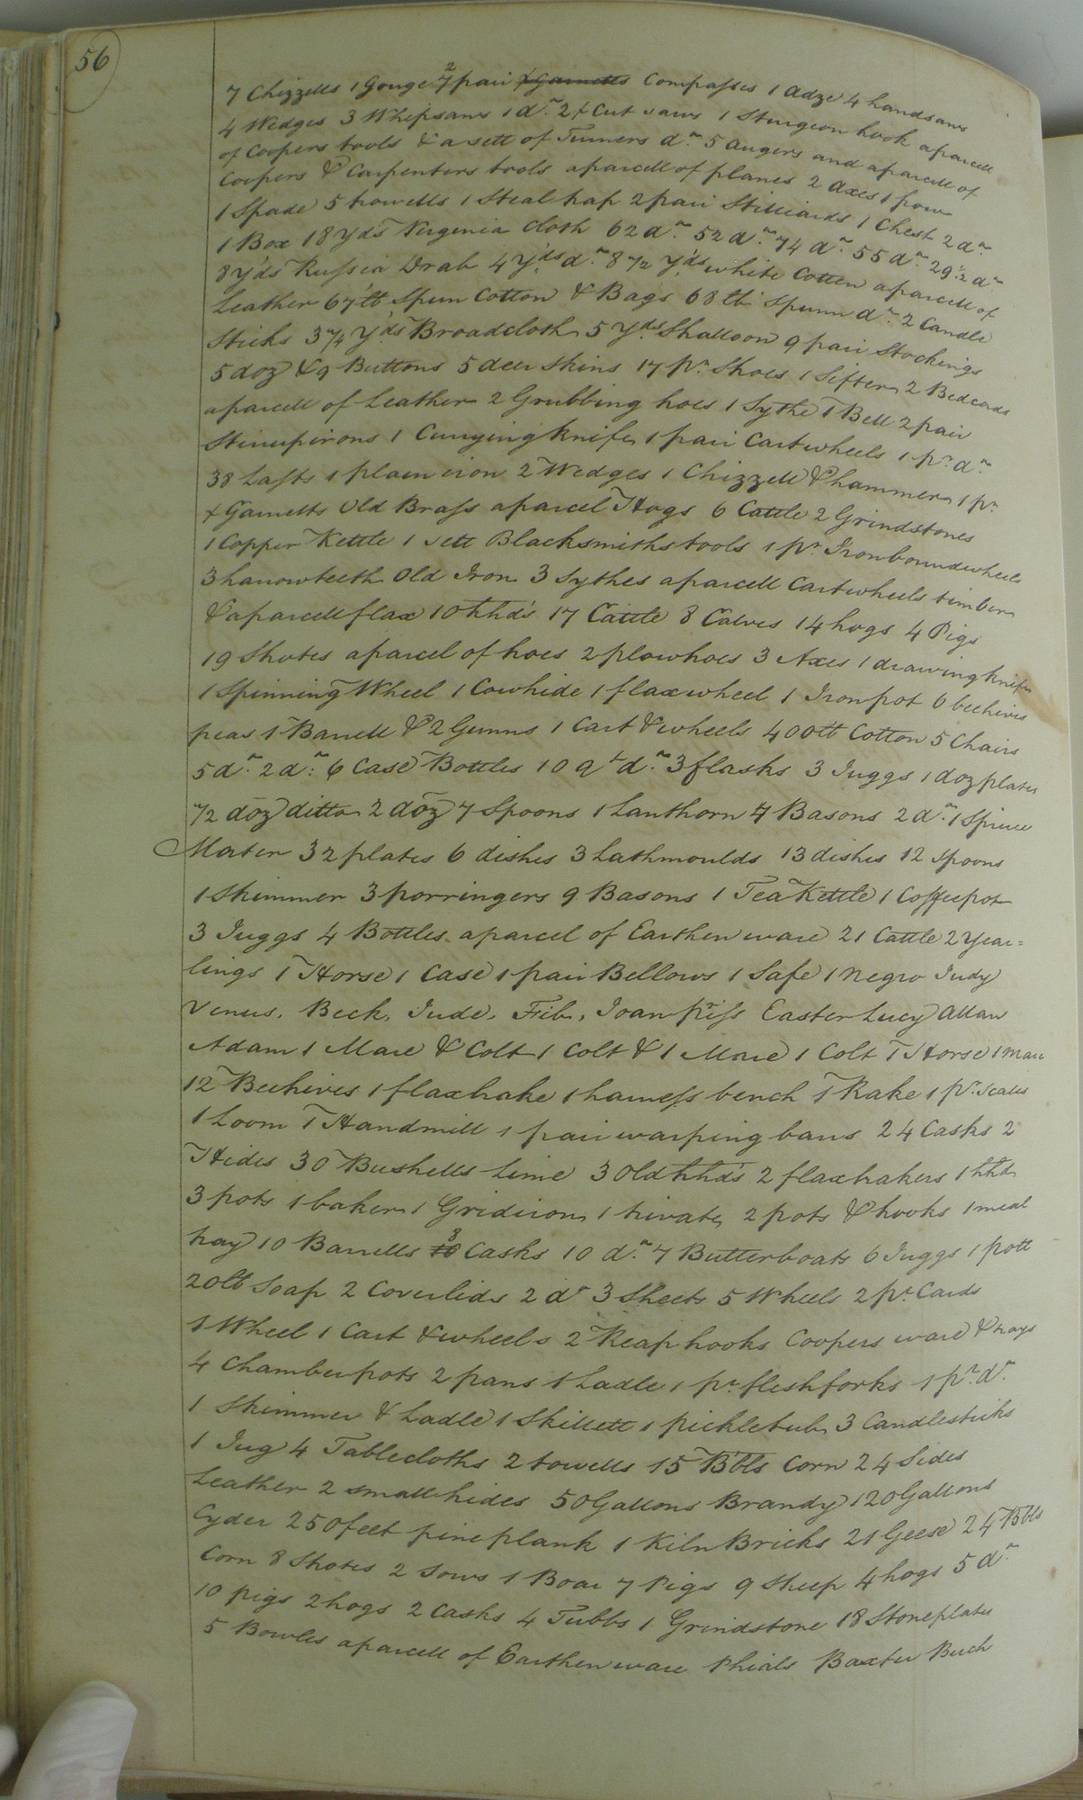 56
7 Chizzells 1 Gouge 2 pair Compasses 1 adze 4 handsaws
4 Wedges 3 Whipsaws 1 do 2 x Cut saws 1 Sturgeon hook aparcell
of Coopers tools & a sett of Turners do 5 augers and aparcell of
Coopers & Carpenters tools aparcell of planes 2 axes 1 frow
1 Spade 5 howells 1 Steal trap 2 pair Stilliards 1 Chest 2 do
1 Box 18 yds Virginia Cloth 62 do 52 do 74 do 55 do 29½ do
8 yds Russia Drab 4 yds do 8½ yds white Cotten aparcell of
Leather 67 lb Spun Cotton & Bags 68 lb Spunn do 2 Candle
Sticks 3¾ yds Broadcloth 5 yds Shalloon 9 pair Stockings
5 doz & 9 Buttons 5 deer skins 17 pr Shoes 1 Sifter 2 Bedcords
aparcell of Leather 2 Grubbing hoes 1 Sythe 1 Bell 2 pair
Stirrupirons 1 Currying knife 1 pair Cartwheels 1 pr do
38 Lasts 1 plain iron 2 Wedges 1 Chizzell & hammer 1 pr
x Garnetts Old Brass aparcel Hogs 6 Cattle 2 Grindstones
1 Copper Kettle 1 sett Blacksmiths tools 1 pr Ironboundwheels
3 harrowteeth Old Iron 3 Sythes aparcell Cartwheels timber
& aparcell flax 10 hhds 17 Cattle 8 Calves 14 hogs 4 Pigs
19 Shotes aparcel of hoes 2 plowhoes 3 Axes 1 drawing knife
1 Spinning Wheel 1 Cowhide 1 flaxwheel 1 Ironpot 6 beehives
peas 1 Barrell & 2 Gunns 1 Cart & wheels 400 lb Cotton 5 Chairs
5 do 2 do 6 Case Bottles 10 qt do 3 flasks 3 Juggs 1 doz plates
½ doz ditto 2 doz 7 Spoons 1 Lanthorn 4 Basons 2 do 1 Spice
Morter 32 plates 6 dishes 3 Lathmoulds 13 dishes 12 Spoons
1 Skimmer 3 porringers 9 Basons 1 Tea Kettle 1 Coffeepot
3 Juggs 4 Bottles aparcel of Earthen ware 21 Cattle 2 Year=
lings 1 Horse 1 Case 1 pair Bellows 1 Safe 1 negro Judy
Venus, Beck, Jude, Fib, Joan Easter Lucy
Adam 1 Mare & Colt 1 Colt & 1 Mare 1 Colt 1 Horse 1 mare
12 Beehives 1 flaxhake 1 harness bench 1 Rake 1 pr scales
1 Loom 1 Handmill 1 pair warping bars 24 Casks 2
Hides 30 Bushells Lime 3 Old hhds 2 flaxhakers 1 hhd
3 pots 1 baker 1 Gridiron 1 trivate 2 pots & hooks 1 meal
tray 10 Barrells 8 Casks 10 do 7 Butterboats 6 Juggs 1 pott
20 lb Soap 2 Coverlids 2 do 3 Sheets 5 Wheels 2 pr Cards
1 Wheel 1 Cart & wheels 2 Reap hooks Coopers ware & trays
4 Chamberpots 2 pans 1 Ladle 1 pr fleshforks 1 pr do
1 Skimmer & Ladle 1 Skillett 1 pickletub 3 Candlesticks
1 Jug 4 Tablecloths 2 towells 15 Bbls Corn 24 Sides
Leather 2 small hides 50 Gallons Brandy 120 Gallons
Cyder 250 feet pine plank 1 Kiln Bricks 21 Geese 24 Bbls
Corn 8 Shotes 2 Sows 1 Boar 7 Pigs 9 Sheep 4 hogs 5 do
10 pigs 2 hogs 2 Casks 4 Tubbs 1 Grindstone 18 Stoneplates
5 Bowles aparcell of Earthen ware Phials Baxter Buch